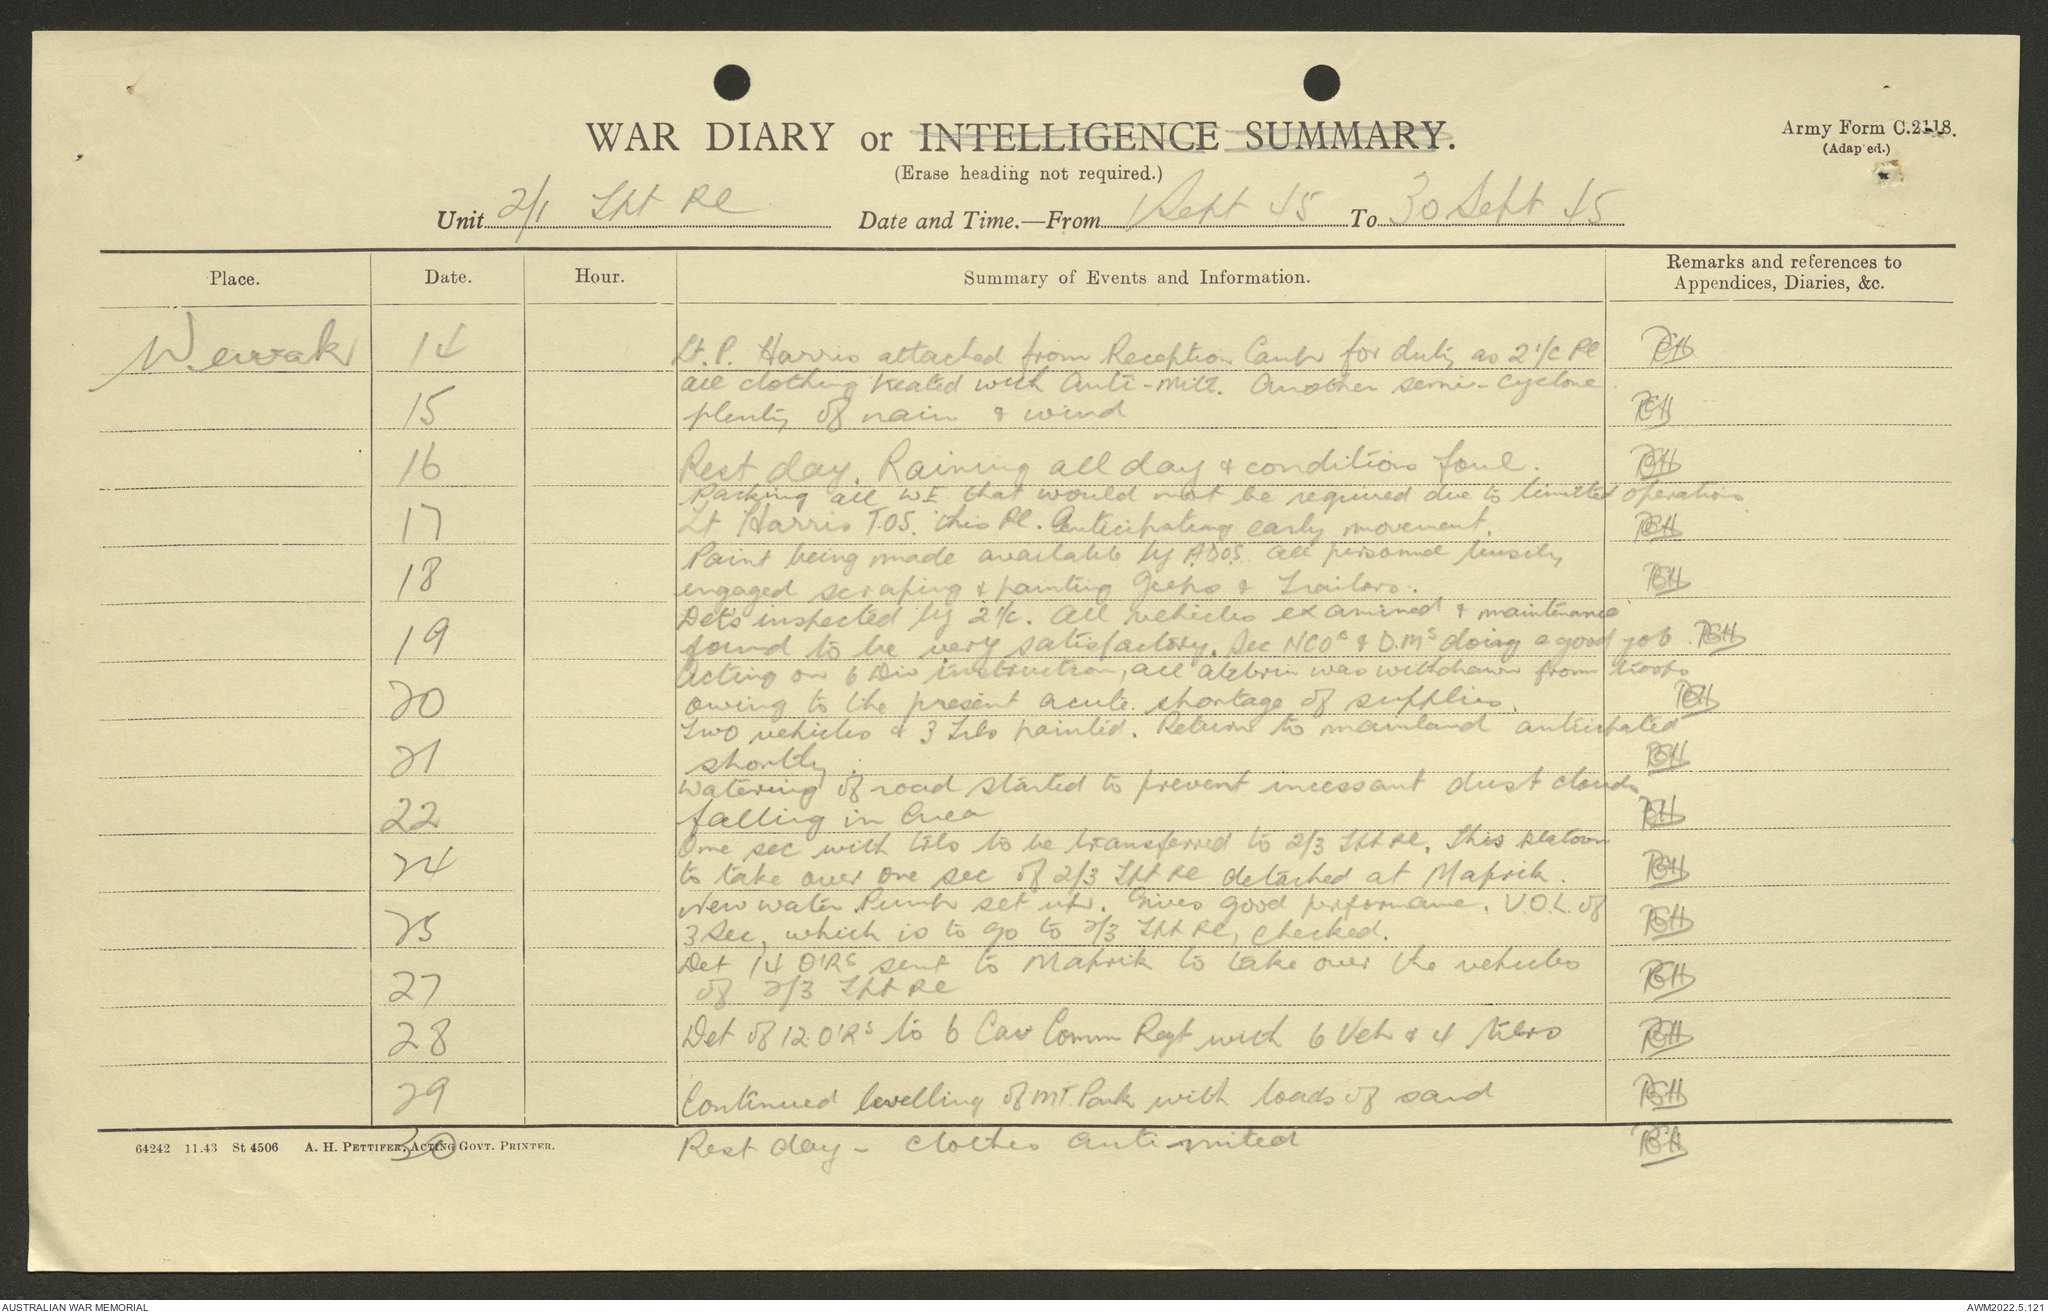 WAR DIARY or INTELLIGENCE SUMMARY.
Army Form C.2118.
(Adapted.)
(Erase heading not required.)
Unit 2/1 Tpt Pl Date and Time.—From 1 Sept 45 To 30 Sept 45
Place. Date. Hour. Summary of Events and Information. Remarks and references to
Appendices, Diaries, &c.
Wewak 14 Lt. P. Harris attached from Reception Camp for duty as 2 i/c Pl
all clothing treated with Anti-mite. Another semi-cyclone
15 plenty of rain & wind
16 Rest day. Raining all day & conditions foul.
Packing all W.E. that would not be required due to limited operations
17 Lt Harris T.O.S. this Pl. Anticipating early movement.
Paint being made available by A.D.O.S. all personnel busily
18 engaged scraping & painting Jeeps & Trailers.
Dets inspected by 2 i/c. All vehicles examined & maintenance
19 found to be very satisfactory. Sec NCOs & D.Ms doing a good job.
Acting on 6 Div instruction, all atebrin was withdrawn from troops
20 owing to the present acute shortage of supplies.
Two vehicles & 3 Trls painted. Return to mainland anticipated
21 shortly.
Watering of road started to prevent incessant dust clouds
22 falling in Area
One sec with trls to be transferred to 2/3 Tpt Pl. This platoon
24 to take over one sec of 2/3 Tpt Pl detached at Maprik.
New water Pump set up. Gives good performance. V.O.L. of
25 3 Sec, which is to go to 2/3 Tpt Pl, checked.
Det 14 O'Rs sent to Maprik to take over the vehicles
27 of 2/3 Tpt Pl
28 Det of 12 O'Rs to 6 Cav Comm Regt with 6 Veh & 4 trlrs
29 Continued levelling of MT Park with loads of sand
64242 11.43 St 4506 A. H. PETTIFER, ACTING GOVT. PRINTER.
30 Rest day - clothes anti-mited
AUSTRALIAN WAR MEMORIAL
AWM2022.5.121